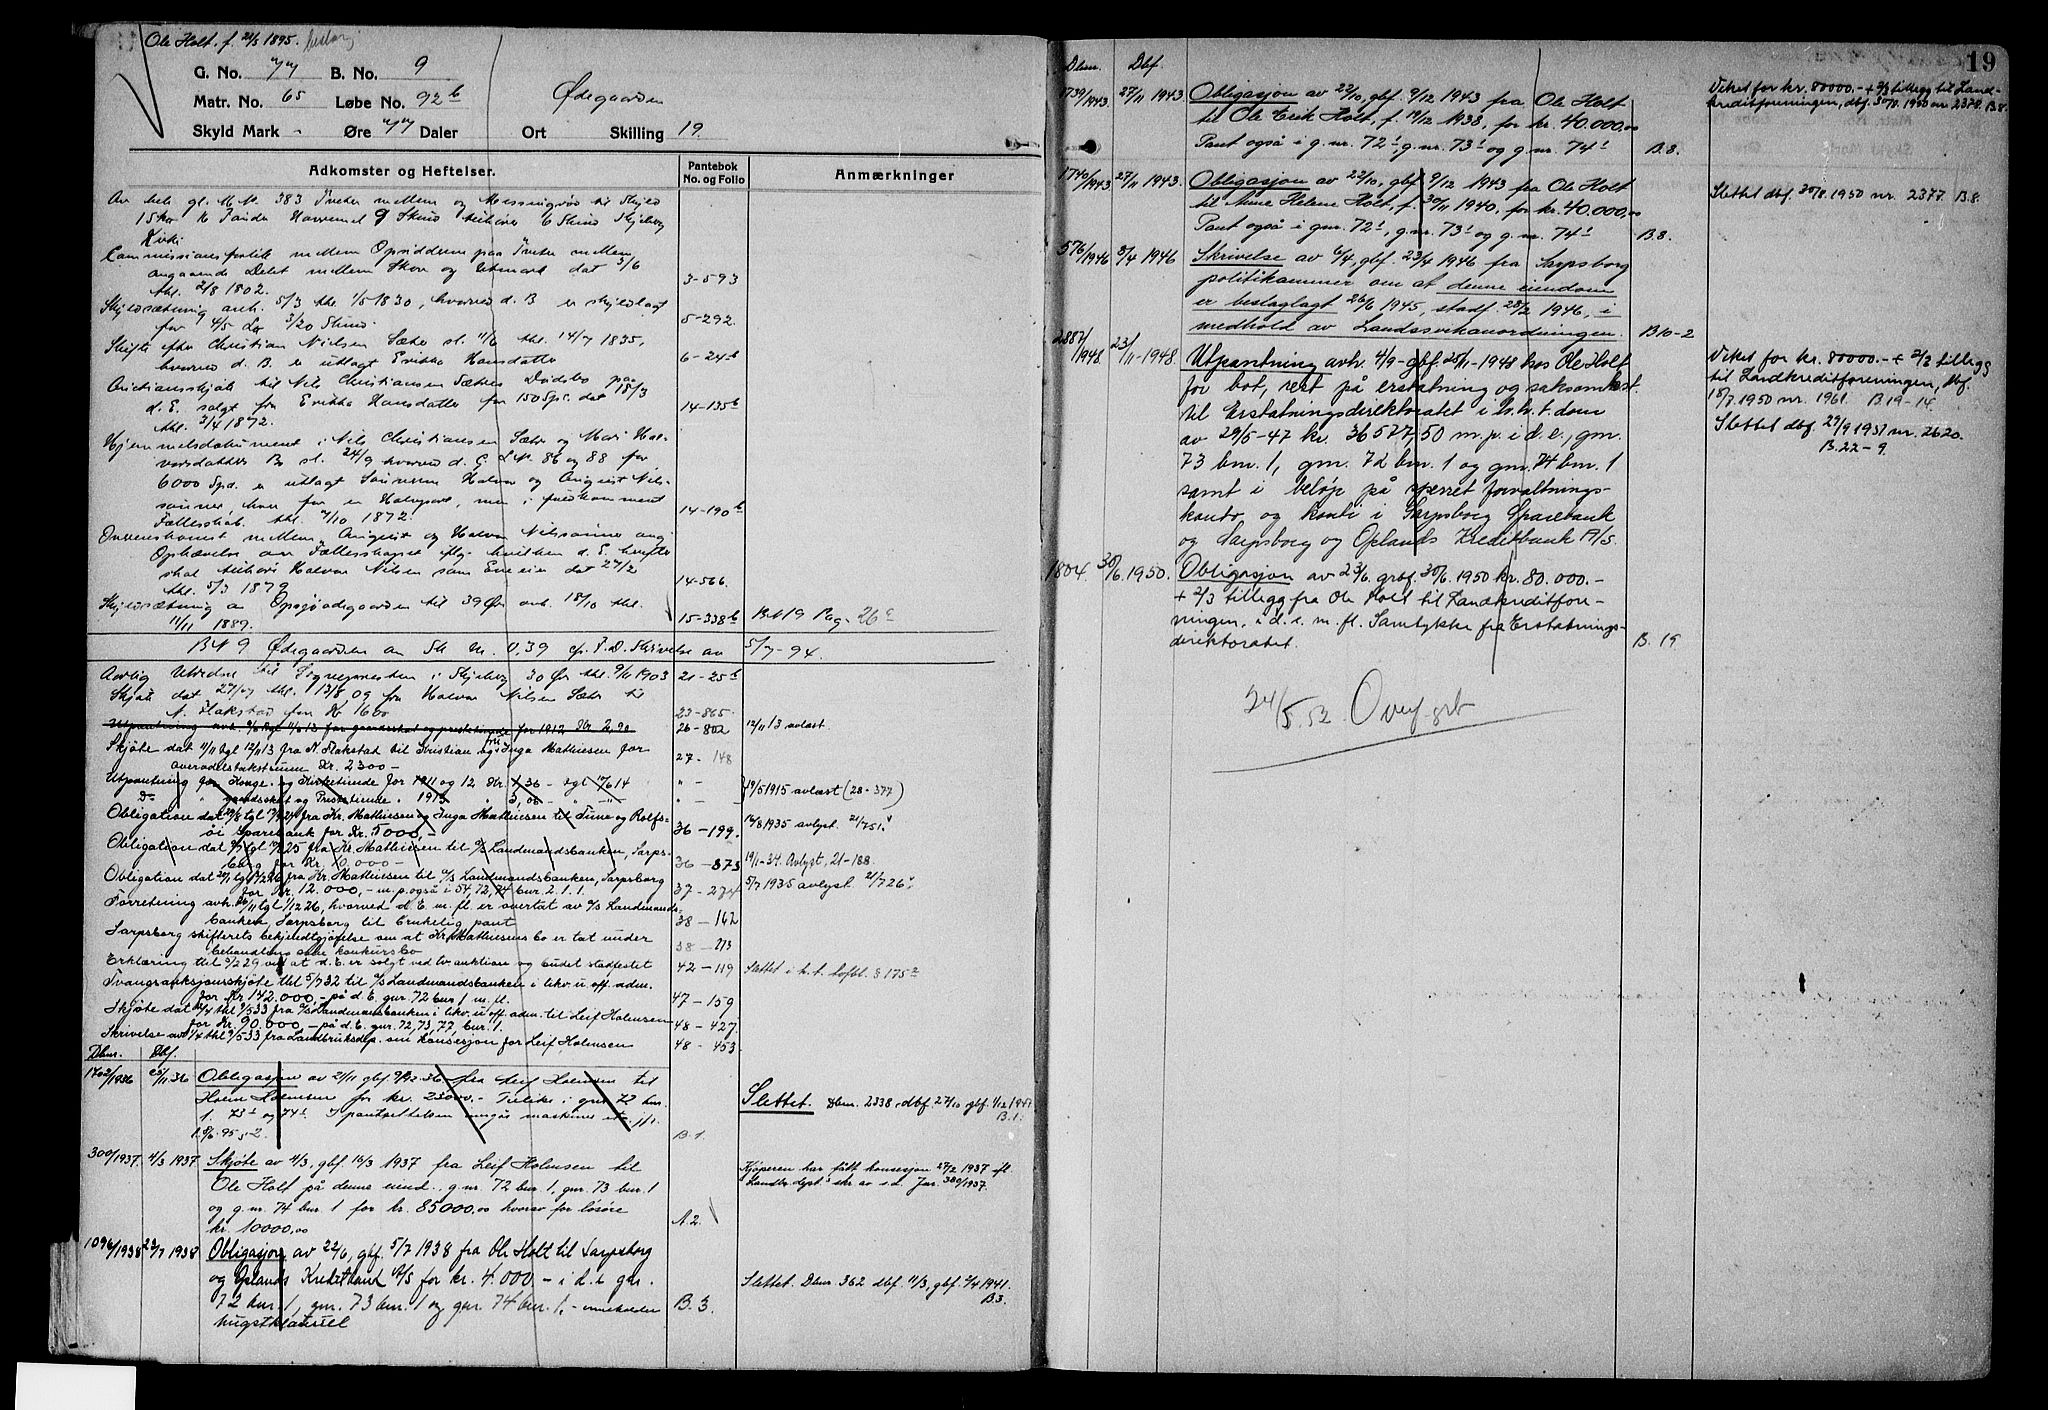 Ole Holt, f. 21/5 1895.
G. No. 77 B. No. 9
Matr. No. 65 Løbe No. 92b Ødegaarden
Skyld Mark - Øre 77 Daler Ort Skilling 19.
Adkomster og Hæftelser. Pantebok No. og Folio Anmærkninger
Av hele gl. M. Nr. 383 Træter mellem og
1 Skpr
Kirke
Commissionsforlik mellem Opsidderne paa Træter mellem
angaaende Delet mellem Skov og Utmark dat 3/6
thl. 2/8 1802. 3-593
Skyldsætning avh. 5/3 thl 1/5 1830, hvorved d. B er skyldlagt
for 4/5 Lø 3/20 Skind. 5-292.
Skifte efter Christian Nielsen Sæter sl. 11/6 thl. 14/7 1835,
hvorved d. B. er utlagt Erikka Hansdatter 6-24b
Auctionsskjøte til Nils Christiansen Sæters Dødsbo paa
d. E. solgt fra Erikka Hansdatter for 150 Spd. dat 18/3
thl. 3/4 1872. 14-135b
Hjemmelsdokument i Nils Christiansen Sæter og Mari Hal-
vorsdatters Bo sl. 24/9 hvorved d. E L.Nr. 86 og 88 for
6000 Spd. er utlagt Sønnerne Halvor og August Nils-
sønner, hver for en Halvpart, men i fuldkomment
Fællesskab. thl. 7/10 1872. 14-190b
Overenskomst mellem August og Halvor Nilssønner ang.
Ophævelse av Fællesskapet iflg. hvilken d. E. herefter
skal tilhøre Halvor Nilsen som Eneeier dat 27/2
thl. 5/3 1879 14-566.
Skyldsætning av Opsjøødegaarden til 39 Ør avh. 18/10 thl.
11/11 1889. 15-338b BN 19 Pag. 26c
BN 9 Ødegaarden av Sk M. 0,39 cfr. J.D. Skrivelse av 5/7-94.
Aarlig Utredsel til Sognepresten i Skjeberg 30 Ør thl. 9/11 1903 21-25b
Skjøte dat 27/07 thl. 13/8 09 fra Halvor Nilsen Sæter til
N. Flakstad for Kr 1600 23-865.
Utpantning avh. 9/6 tgl 11/6 13 for grandeskat og prestetiende for 1912 Kr. 2,90 26-802 12/11 13 avlæst.
Skjøte dat 11/11 tgl 12/11 13 fra N. Flakstad til Kristian og fru Inga Mathiesen for
averadelstakstsum Kr. 2300- 27-148
Utpantning for Konge- og Kirketiende for 1911 og 12 Kr. 1,36 - tgl 17/6 14 " -
Do " grandeskat og Prestetiende " 1913 " 3,00 - " -"- " - 19/5 1915 avlæst (28-377)
Obligation dat 20/8 tgl 17/9 24 fra Kr. Mathiesen og Inga Mathiesen til Tune og Rolfs-
øi Sparebank for Kr. 5000,- 36-199. 16/8 1935 avlyst 21/751.
Obligation dat 9/7 tgl 17/7 25 fra Kr. Mathiesen til A/S Landmandsbanken, Sarps-
borg for Kr. 10.000- 36-873 19/1-34. Avlyst, 21-188.
Obligation dat 20/1 tgl 1/2 26 fra Kr. Mathiesen til A/S Landmandsbanken, Sarpsborg
for Kr. 12.000,- m.p. også i 54, 72, 74 bnr. 2. 1. 1. 37-27 5/7 1935 avlyst 21/726
Forretning avh. 26/11 tgl 1/12 26, hvorved d. E. m. fl. er overtat av A/S Landmands-
banken, Sarpsborg til brukelig pant 38-162
Sarpsborg skifterets bekjendtgjørelse om at Kr. Mathiesens bo er tat under
behandling som konkursbo 38-213
Erklæring thl 5/2 29 om at d. E. er solgt ved tv.auktion og budet stadfestet 42-119 Slettet i h.t. lovbl. § 175
Tvangsauksjonsskjøte thl 5/7 32 til A/S Landmandsbanken i likv. u. off. adm.
for Kr 142.000,- på d. E. gnr. 72 bnr 1 m. fl. 47-159
Skjøte dat 20/4 thl 9/5 33 fra A/S Landmandsbanken i likv. u. off. adm. til Leif Holmsen
for Kr. 90.000,- på d. E. gnr. 72, 73, 77, bnr. 1. 48-427
Skrivelse av 7/4 thl 9/5 33 fra Landbruksdep. om konsesjon for Leif Holmsen 48-453
Dbnr. Dbf.
1702/1936 25/11 36 Obligasjon av 21/11 gbf 9/12 36 fra Leif Holmsen til
Holmsen for kr. 23000.- Tillike i gnr 72 bnr.
1, 73¹ og 74¹. I pantsettelsen inngår maskiner B. 1.
Slettet. Dbnr. 2338, dbf. 27/10 gbf. 1/12 1941 B.1.
300/1937. 4/3 1937 Skjøte av 4/3, gbf 16/3 1937 fra Leif Holmsen til
Ole Holt på denne eiend., g.nr. 72 bnr 1, gnr. 73 bnr. 1
og g.nr. 74 bnr. 1 for kr. 85000,00 hvorav for løsøre
kr. 10000,00 A. 2.
Kjøperen har fått konsesjon 27/2 1937 efl.
Landbr.dept's skr av s.d. Jnr. 300/1937.
1096/1938 23/7 1938 Obligasjon av 22/6, gbf. 5/7 1938 fra Ole Holt til Sarpsborg
og Oplands Kreditbank A/S for kr. 4.000 - i d. e gnr.
72 bnr. 1, gnr. 73 bnr. 1 og gnr. 74 bnr. 1, - inneholder
hugstklausul B. 3.
Slettet. Dbnr 362 dbf. 11/3, gbf. 2/4 1941. B.3.
19
Dbnr. Dbf.
1739/1943 27/11 1943 Obligasjon av 22/10, gbf. 9/12 1943 fra Ole Holt
til Ole Erik Holt, f. 19/12 1938, for kr. 40.000,00
Pant også i g. nr. 72¹, g.nr. 73¹ og g.nr. 74¹ B.8.
Veket for kr. 80000.- + 2/3 tillegg til Land-
kreditforeningen, dbf. 30/8. 1950 nr 2378. B.8.
1740/1943 27/11 1943. Obligasjon av 22/10, gbf 9/12 1943 fra Ole Holt
til Anne Helene Holt, f. 30/11 1940, for kr. 40.000,00
Pant også i g.nr. 72¹, g.nr. 73¹ og g.nr. 74¹ B.8.
Slettet dbf. 30/8. 1950 nr. 2377. B.8.
576/1946 8/4 1946 Skrivelse av 6/4, gbf. 23/4 1946 fra Sarpsborg
politikammer om at denne eiendom
er beslaglagt 26/6 1945, stadf. 28/2 1946, i
medhold av Landssvikanordningen. B.10-2
2887/1948. 23/11-1948. Utpantning avh. 4/9- gbf. 25/11-1948 hos Ole Holt
for bot, rest på erstatning og saksomkost.
til Erstatningsdirektoratet i h.h.t. dom
av 29/5-47 kr. 36 577,50 m.p. i d.e., gnr.
73 bnr. 1, gnr. 72 bnr. 1 og gnr. 74 bnr. 1
samt i beløp på sperret forvaltnings-
konto og konti i Sarpsborg Sparebank
og Sarpsborg og Oplands Kreditbank A/S.
Veket for kr. 80000.- + 2/3 tillegg
til Landkreditforeningen, dbf.
18/7. 1950 nr. 1961. B.19-14.
Slettet dbf. 29/9 1951 nr. 2620.
B.22-9.
1804. 30/6. 1950. Obligasjon av 23/6. gbf. 30/6. 1950 kr. 80.000.-
+ 2/3 tillegg fra Ole Holt til Landkreditfore-
ningen, i d. e. m. fl. Samtykke fra Erstatnings-
direktoratet. B. 19.
24/5.52. Overf. grb